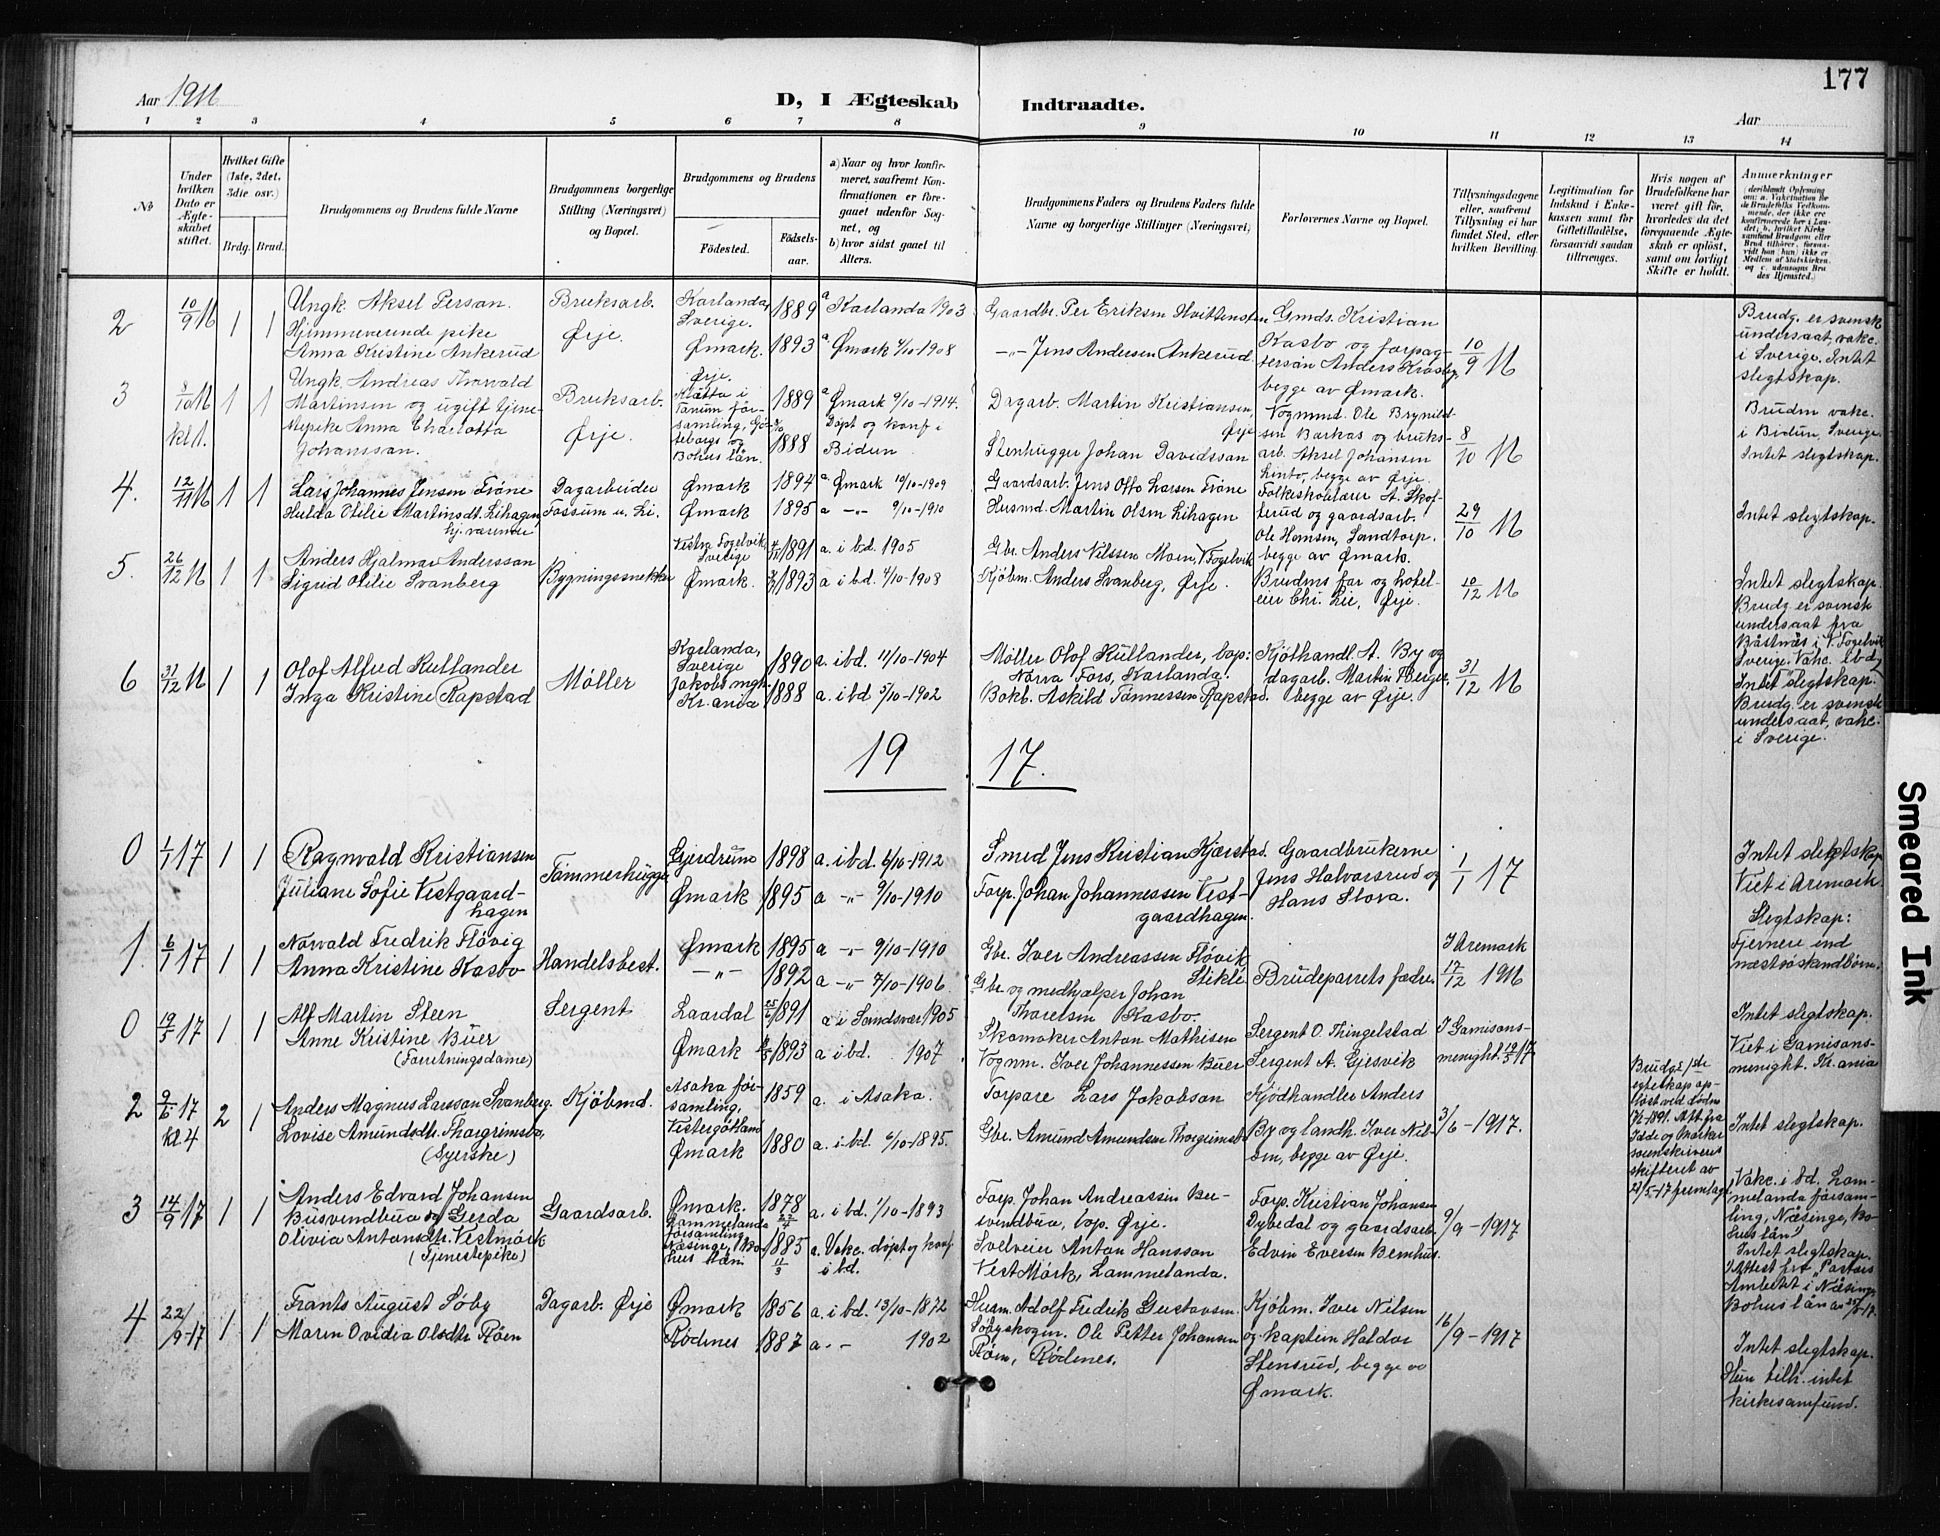 177
Aar 1916
D, I Ægteskab Indtraadte.
Aar
1 2 3 4 5 6 7 8 9 10 11 12 13 14
No
Under hvilken Dato er Ægteskabet stiftet.
Hvilket Gifte (1ste, 2det, 3die osv.)
Brdg. Brud.
Brudgommens og Brudens fulde Navne
Brudgommens borgerlige Stilling (Næringsvei) og Bopæl.
Brudgommens og Brudens
Fødested.
Fødselsaar.
a) Naar og hvor konfirmeret, saafremt Konfirmationen er foregaaet udenfor Sognet, og
b) hvor sidst gaaet til Alters.
Brudgommens Faders og Brudens Faders fulde Navne og borgerlige Stillinger (Næringsvei)
Forlovernes Navne og Bopæl.
Tillysningsdagene eller, saafremt Tillysning ei har fundet Sted, efter hvilken Bevilling.
Legitimation for Indskud i Enkekassen samt for Giftetilladelse, forsaavidt saadan tiltrænges.
Hvis nogen af Brudefolkene har været gift før, hvorledes da det foregaaende Ægteskab er opløst, samt om lovligt Skifte er holdt.
Anmerkninger
2 10/9 16 1 1
Ungk. Aksel Persson.
Hjemmeværende pike
Anna Kristine Ankerud
Bruksarb.
Ørje.
Karlanda, Sverige. 1889
Ømark. 1893
a Karlanda 1903
a Ømark 4/10-1908
Gaardbr. Per Eriksen Hvittensten
-"- Jens Andersen Ankerud.
Gmds. Kristian
Kasbo og forpagtersøn Anders Krosby,
begge av Ømark.
10/9 16
Brudg. er svensk
undersaat, vakc.
i Sverige. Intet
slegtskap.
3 8/10 16 kl 1. 1 1
Ungk. Andreas Thorvald
Martinsen og ugift tjenestepike Anna Charlotta
Johansson.
Bruksarb.
Ørje.
Ørje. 1889
Tanum församling, Göteborgs og
Bohus län. 1888
a Ømark 9/10-1914.
Døpt og konf i
Bidun
Dagarb. Martin Kristiansen,
Ørje
Stenhugger Johan Davidsson
Vognmd. Ole Brynildsen Barkas og bruksarb. Aksel Johansen
Linbo, begge av Ørje.
8/10 16
Bruden vakc.
i Bidun, Sverige.
Intet slegtskap.
4. 12/11 16 1 1
Lars Johannes Jensen Tröne
Hulda Otilie Martinsdt. Lihagen,
hj. værende
Dagarbeider
Fossum u. Li.
Ømark 1894
Ømark 1895
a Ømark 10/10-1909
a -"- 9/10-1910
Gaardsarb. Jens Otto Larsen Tröne
Husmd. Martin Olsen Lihagen
Folkeskolelærer A. Skofterud og gaardsarb.
Ole Hansen, Sandtorp.
begge av Ømark.
29/10 16
Intet slegtskap.
5. 26/12 16 1 1
Anders Hjalmar Andersson
Sigrid Otilie Svanberg
Bygningssnekker
Vestra Fogelvik, Sverige 1891
Ømark. 1893
a. i bd. 1905
a i bd. 4/10-1908
Gbr. Anders Nilssen Moen, V. Fogelvik
Kjøbm. Anders Svanberg, Ørje.
Brudens far og hoteleier Chr. Lie, Ørje.
10/12 16
Intet slegtskap.
Brudg. er svensk
undersaat fra
Båstnäs i V. Fogelvik
Sverige. Vakc. ibd.
6 31/12 16 1 1
Olof Alfred Kullander
Inga Kristine Rapstad
Møller
Karlanda, Sverige 1890
Jakobs mgh. Kr.ania 1888
a. i bd. 11/10-1904
a. i bd 5/10-1902
Møller Olof Kullander, bop:
Norra Fors, Karlanda.
Bokb. Askild Tönnessen Rapstad.
Kjøthandl. A. By og
dagarb. Martin Berger,
begge av Ørje.
31/12 16
Intet slegtskap.
Brudg. er svensk
undersaat, vakc.
i Sverige.
19 17.
0 1/1 17 1 1
Ragnvald Kristiansen
Juliane Sofie Vestgaardhagen
Tømmerhugger
Gjerdrum 1898
Ømark 1895
a. i bd. 6/10-1912
a -"- 9/10-1910
Smed Jens Kristian Kjærstad.
Forp. Johan Johannessen Vestgaardhagen.
Gaardbrukerne
Jens Halvorsrud og
Hans Slora.
1/1 17
Intet slegtskap
Viet i Aremark.
1. 6/1 17 1 1
Norvald Fredrik Fløvig
Anna Kristine Kasbo
Handelsbest.
Ømark 1895
-"- 1892
a -"- 9/10-1910
a -"- 7/10-1906.
Gbr. Iver Andreassen Fløvik
Stikle
Gbr. og medhjælper Johan
Thoresen Kasbo.
Brudeparrets fædre.
I Aremark
17/12 1916
Slegtskap:
Fjernere end
næstsøskendbørn.
0 19/5 17 1 1
Alf Martin Steen
Anne Kristine Buer
(Forretningsdame)
Sergent
Laardal 1891
Ømark 1893
a i Sandsvær 1905
a i bd. 1907
Skomaker Anton Mathisen
Vognm. Iver Johannessen Buer
Sergent O. Thingelstad
Sergent A. Gjesvik
I Garnisonsmenight. 19/5 17
Intet slegtskap.
Viet i Garnisonsmenight. Kr.ania
2 9/6 17 kl 4 2 1
Anders Magnus Larsson Svanberg.
Lovise Amundsdtr. Thorgrimsbø,
(Syerske)
Kjøbmd.
Asaka församling, Vestergötland 1859
Ømark 1880
a. i Asaka.
a. i bd. 6/10-1895.
Torpare Lars Jakobson
Gbr. Amund Amundsen Thorgrimsb
Kjødhandler Anders
By og landh. Iver Nilsen, begge av Ørje.
3/6-1917.
Brudgs 1ste
egteskap opløst ved døden
1891. Att. fra
Idde og Marker
sorenskriveri
skifteret av
22/5-17 fremlagt
Intet slegtskap.
3 14/9 17 1 1
Anders Edvard Johansen
Busvendbua og Gerda
Olivia Antonsdtr. Vestmörk
(Tjenestepike)
Gaardsarb.
Ømark. 1878 22/4
Lommelanda
församling,
Näsinge, Bohus län 1885 11/3
a. i bd. 1/10-1893
a. Vakc. døpt og konf
i bd.
Forp. Johan Andreassen Busvendbua, bop. Ørje.
Selveier Anton Hansson
Vest Mörk, Lommelanda.
Forp. Kristian Johansen
Dybedal og gaardsarb.
Edvin Eversen Bernhus.
9/9-1917
Vakc. i bd. Lommelanda församling, Näsinge, Bohus län.
Intet slegtskap.
Attest fra "Pastors
Ambetet i Näsinge
Bohus län
4 22/9-17 1 1
Frants August Søby
Maren Ovidia Olsdtr. Røen
Dagarb. Ørje
Ømark 1856
Rødenes 1887
a. i bd. 13/10-1872
a. -"- 1902
Husm. Adolf Fredrik Gustavsen
Søbyskogen. Ole Petter Johansen
Røen, Rødenes.
Kjøbm. Iver Nilsen
og kaptein Haldor
Stensrud, begge av
Ømark.
16/9-1917
Intet slegtskap.
Hun tilh. intet
kirkesamfund.
Smeared Ink